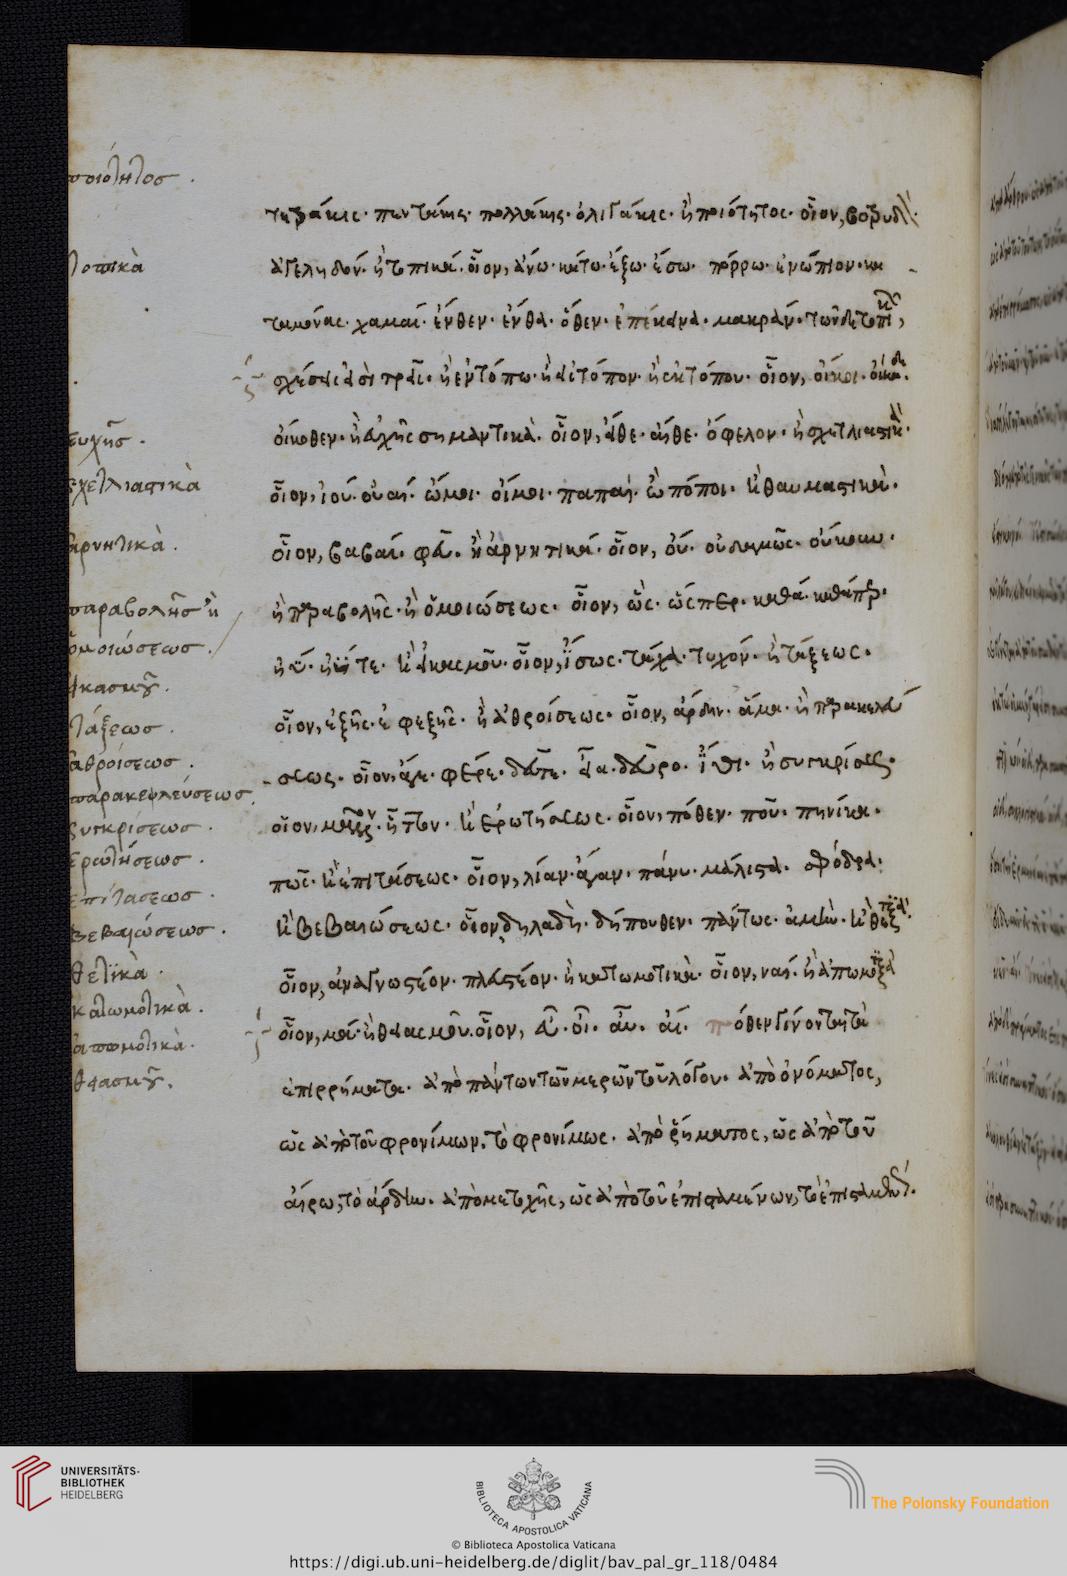 ποιότητος.
τετράκις· πεντάκις· πολλάκις· ὀλιγάκις· ἢ ποιότητος· οἷον, βοτρυδόν·
τοπικὰ
ἀγεληδόν· ἢ τοπικά· οἷον, ἄνω· κάτω· ἔξω· ἔσω· πόρρω· ἐνώπιον· κα
χαμαί· ἔνθεν· ἔνθα· ὅθεν· ἐπέκεινα· μακράν· τῶν δὲ τοπικῶν,
σχέσεις εἰσὶ τρεῖς· ἢ ἐν τόπω· ἢ εἰς τόπον· ἢ ἐκ τόπου· οἷον, οἴκοι· οἴκαδε·
εὐχῆς.
οἴκοθεν· ἢ εὐχῆς σημαντικὰ· οἷον, εἴθε· αἴθε· ὄφελον· ἢ σχετλιαστικὰ·
σχετλιαστικὰ
οἷον, ἰού· οὐαί· ὤμοι· οἴμοι· παπαί· ὢ πόποι· ἢ θαυμαστικά·
ἀρνητικὰ.
οἷον, βαβαί· φεῦ· ἢ ἀρνητικά· οἷον, οὔ· οὐδαμῶς· οὔκουν·
παραβολῆς ἢ
ἢ παραβολῆς· ἢ ὁμοιώσεως· οἷον, ὡς· ὥσπερ· καθά· καθάπερ·
ὁμοιώσεως.
ἠΰτε· ἢ εἰκασμοῦ· οἷον, ἴσως· τάχα· τυχόν· ἢ τάξεως·
εἰκασμοῦ.
τάξεως.
οἷον, ἑξῆς· ἐφεξῆς· ἢ ἀθροίσεως· οἷον, ἄρδην· ἅμα· ἢ παρακελεύ
ἀθροίσεως.
σεως· οἷον, ἄγε· φέρε· δεῦτε· εἶα· δεῦρο· ἴθι· ἢ συγκρίσεως·
παρακελεύσεως.
συγκρίσεως.
οἷον, μᾶλλον· ἧττον· ἢ ἐρωτήσεως· οἷον, πόθεν· ποῦ· πηνίκα·
ἐρωτήσεως.
πῶς· ἢ ἐπιτάσεως· οἷον, λίαν· ἄγαν· πάνυ· μάλιστα· σφόδρα·
ἐπιτάσεως.
ἢ βεβαιώσεως· οἷον, δηλαδὴ· δήπουθεν· πάντως· ἀμὴν· ἢ θετικὰ·
βεβαιώσεως.
θετϊκὰ.
οἷον, ἀναγνωστέον· πλευστέον· ἢ κατωμοτικὰ· οἷον, ναί· ἢ ἀπωμοτικὰ
κατωμοτικὰ.
οἷον, μά· ἢ θειασμοῦ· οἷον, πόθεν γίνονται τὰ
ἀπωμοτικὰ.
ἐπιρρήματα· ἀπὸ πάντων τῶν μερῶν τοῦ λόγου· ἀπὸ ὀνόματος,
θειασμοῦ.
ὡς ἀπὸ τοῦ φρονίμων, τὸ φρονίμως· ἀπὸ ῥήματος, ὡς ἀπὸ τοῦ
αἴρω, τὸ ἄρδην· ἀπὸ μετοχῆς, ὡς ἀπὸ τοῦ ἐπισταμένων, τὸ ἐπισταμένως·
UNIVERSITÄTS-
BIBLIOTHEK
HEIDELBERG
BIBLIOTECA APOSTOLICA VATICANA
The Polonsky Foundation
© Biblioteca Apostolica Vaticana
https://digi.ub.uni-heidelberg.de/diglit/bav_pal_gr_118/0484